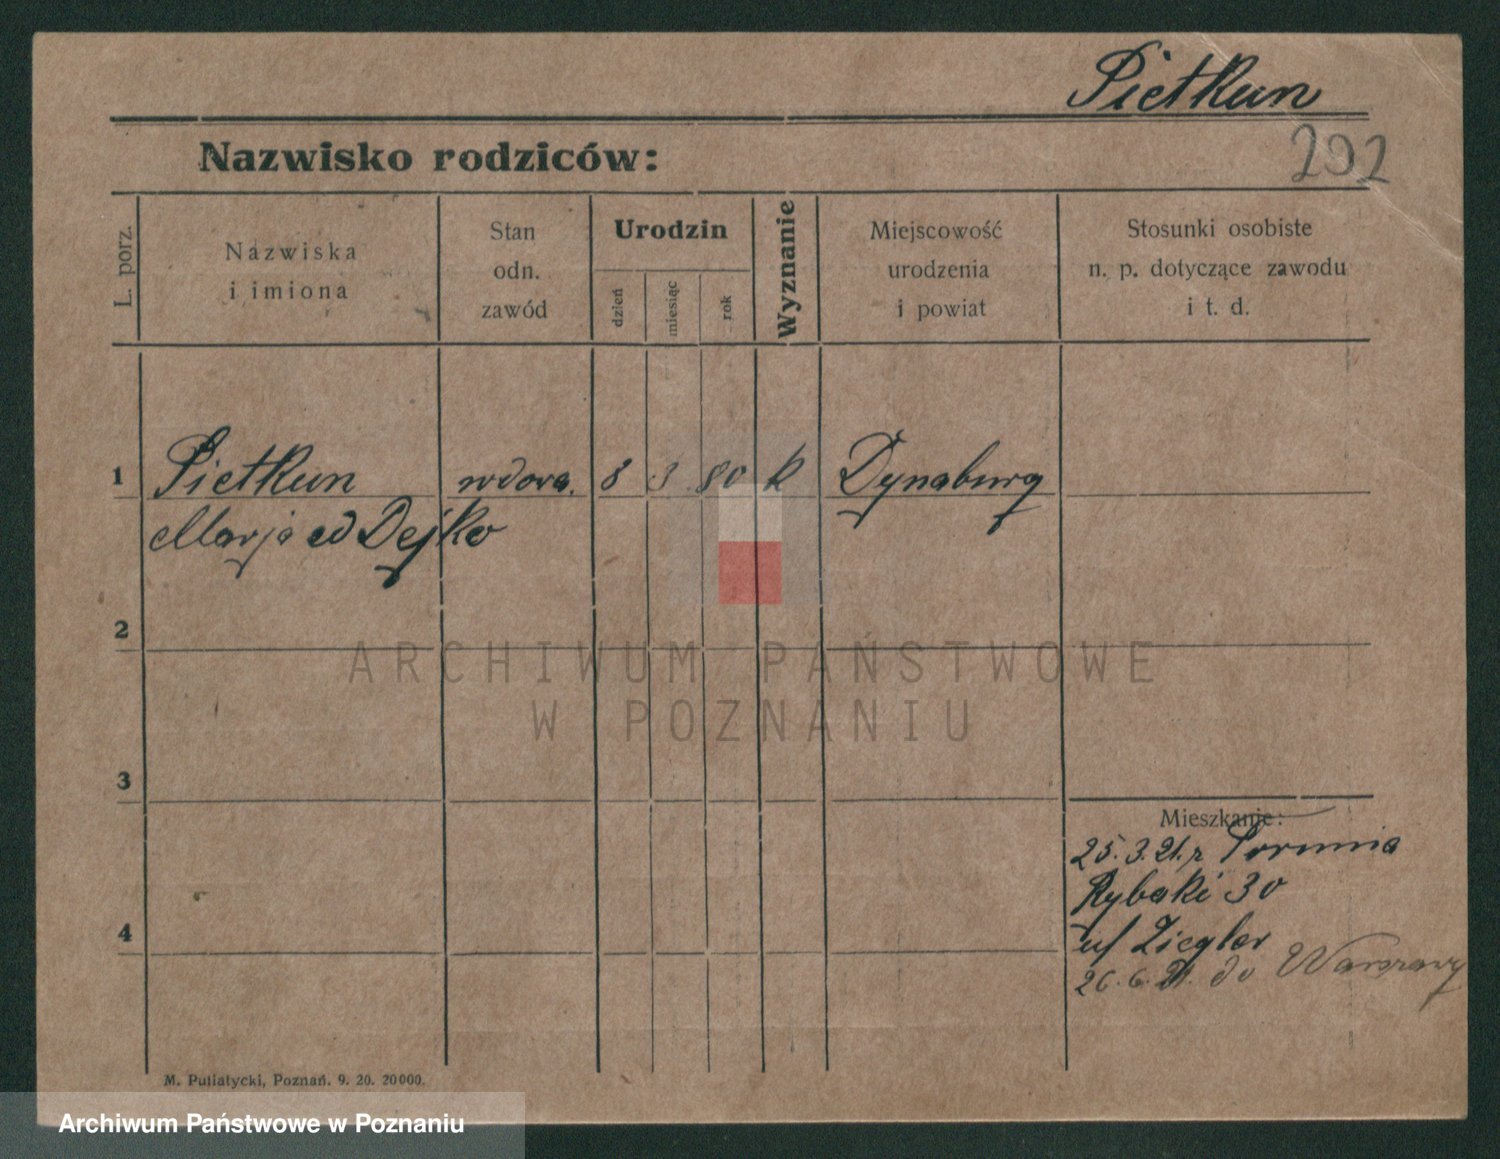 Pietkun
Nazwisko rodziców:
292
L. porz.
Nazwiska
i imiona
Stan
odn.
zawód
Urodzin
dzień
miesiąc
rok
Wyznanie
Miejscowość
urodzenia
i powiat
Stosunki osobiste
n. p. dotyczące zawodu
i t. d.
1 Pietkun wdowa. 8 3 80 k Dynaburg
Marja
Dejko
2
ARCHIWUM PAŃSTWOWE
W POZNANIU
3
Mieszkanie:
25.3.21. z Torunia
Rybaki 30
4
Ziegler
26.6.21. do Warszawy
M. Putiatycki, Poznań. 9. 20. 20000.
Archiwum Państwowe w Poznaniu